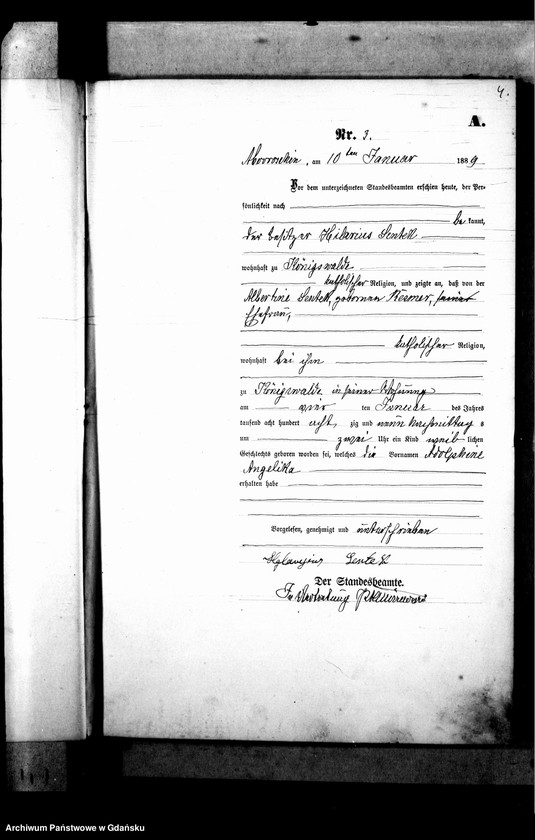 4.
A.
Nr. 3.
am 10ten Januar 1889
Vor dem unterzeichneten Standesbeamten erschien heute, der Per-
sönlichkeit nach
be kannt,
der Besitzer Hilarius Lentek
wohnhaft zu Königswalde
katholischer Religion, und zeigte an, daß von der
Albertine Lentek, geborenen seiner
Ehefrau,
katholischer Religion,
wohnhaft bei ihm
zu Königswalde in seiner Wohnung
am vier ten Januar des Jahres
tausend acht hundert acht zig und neun Vormittag s
um zwei Uhr ein Kind weib lichen
Geschlechts geboren worden sei, welches die Vornamen
Angelika
erhalten habe
Vorgelesen, genehmigt und unterschrieben
Lentek
Der Standesbeamte.
In Vertretung
Archiwum Państwowe w Gdańsku